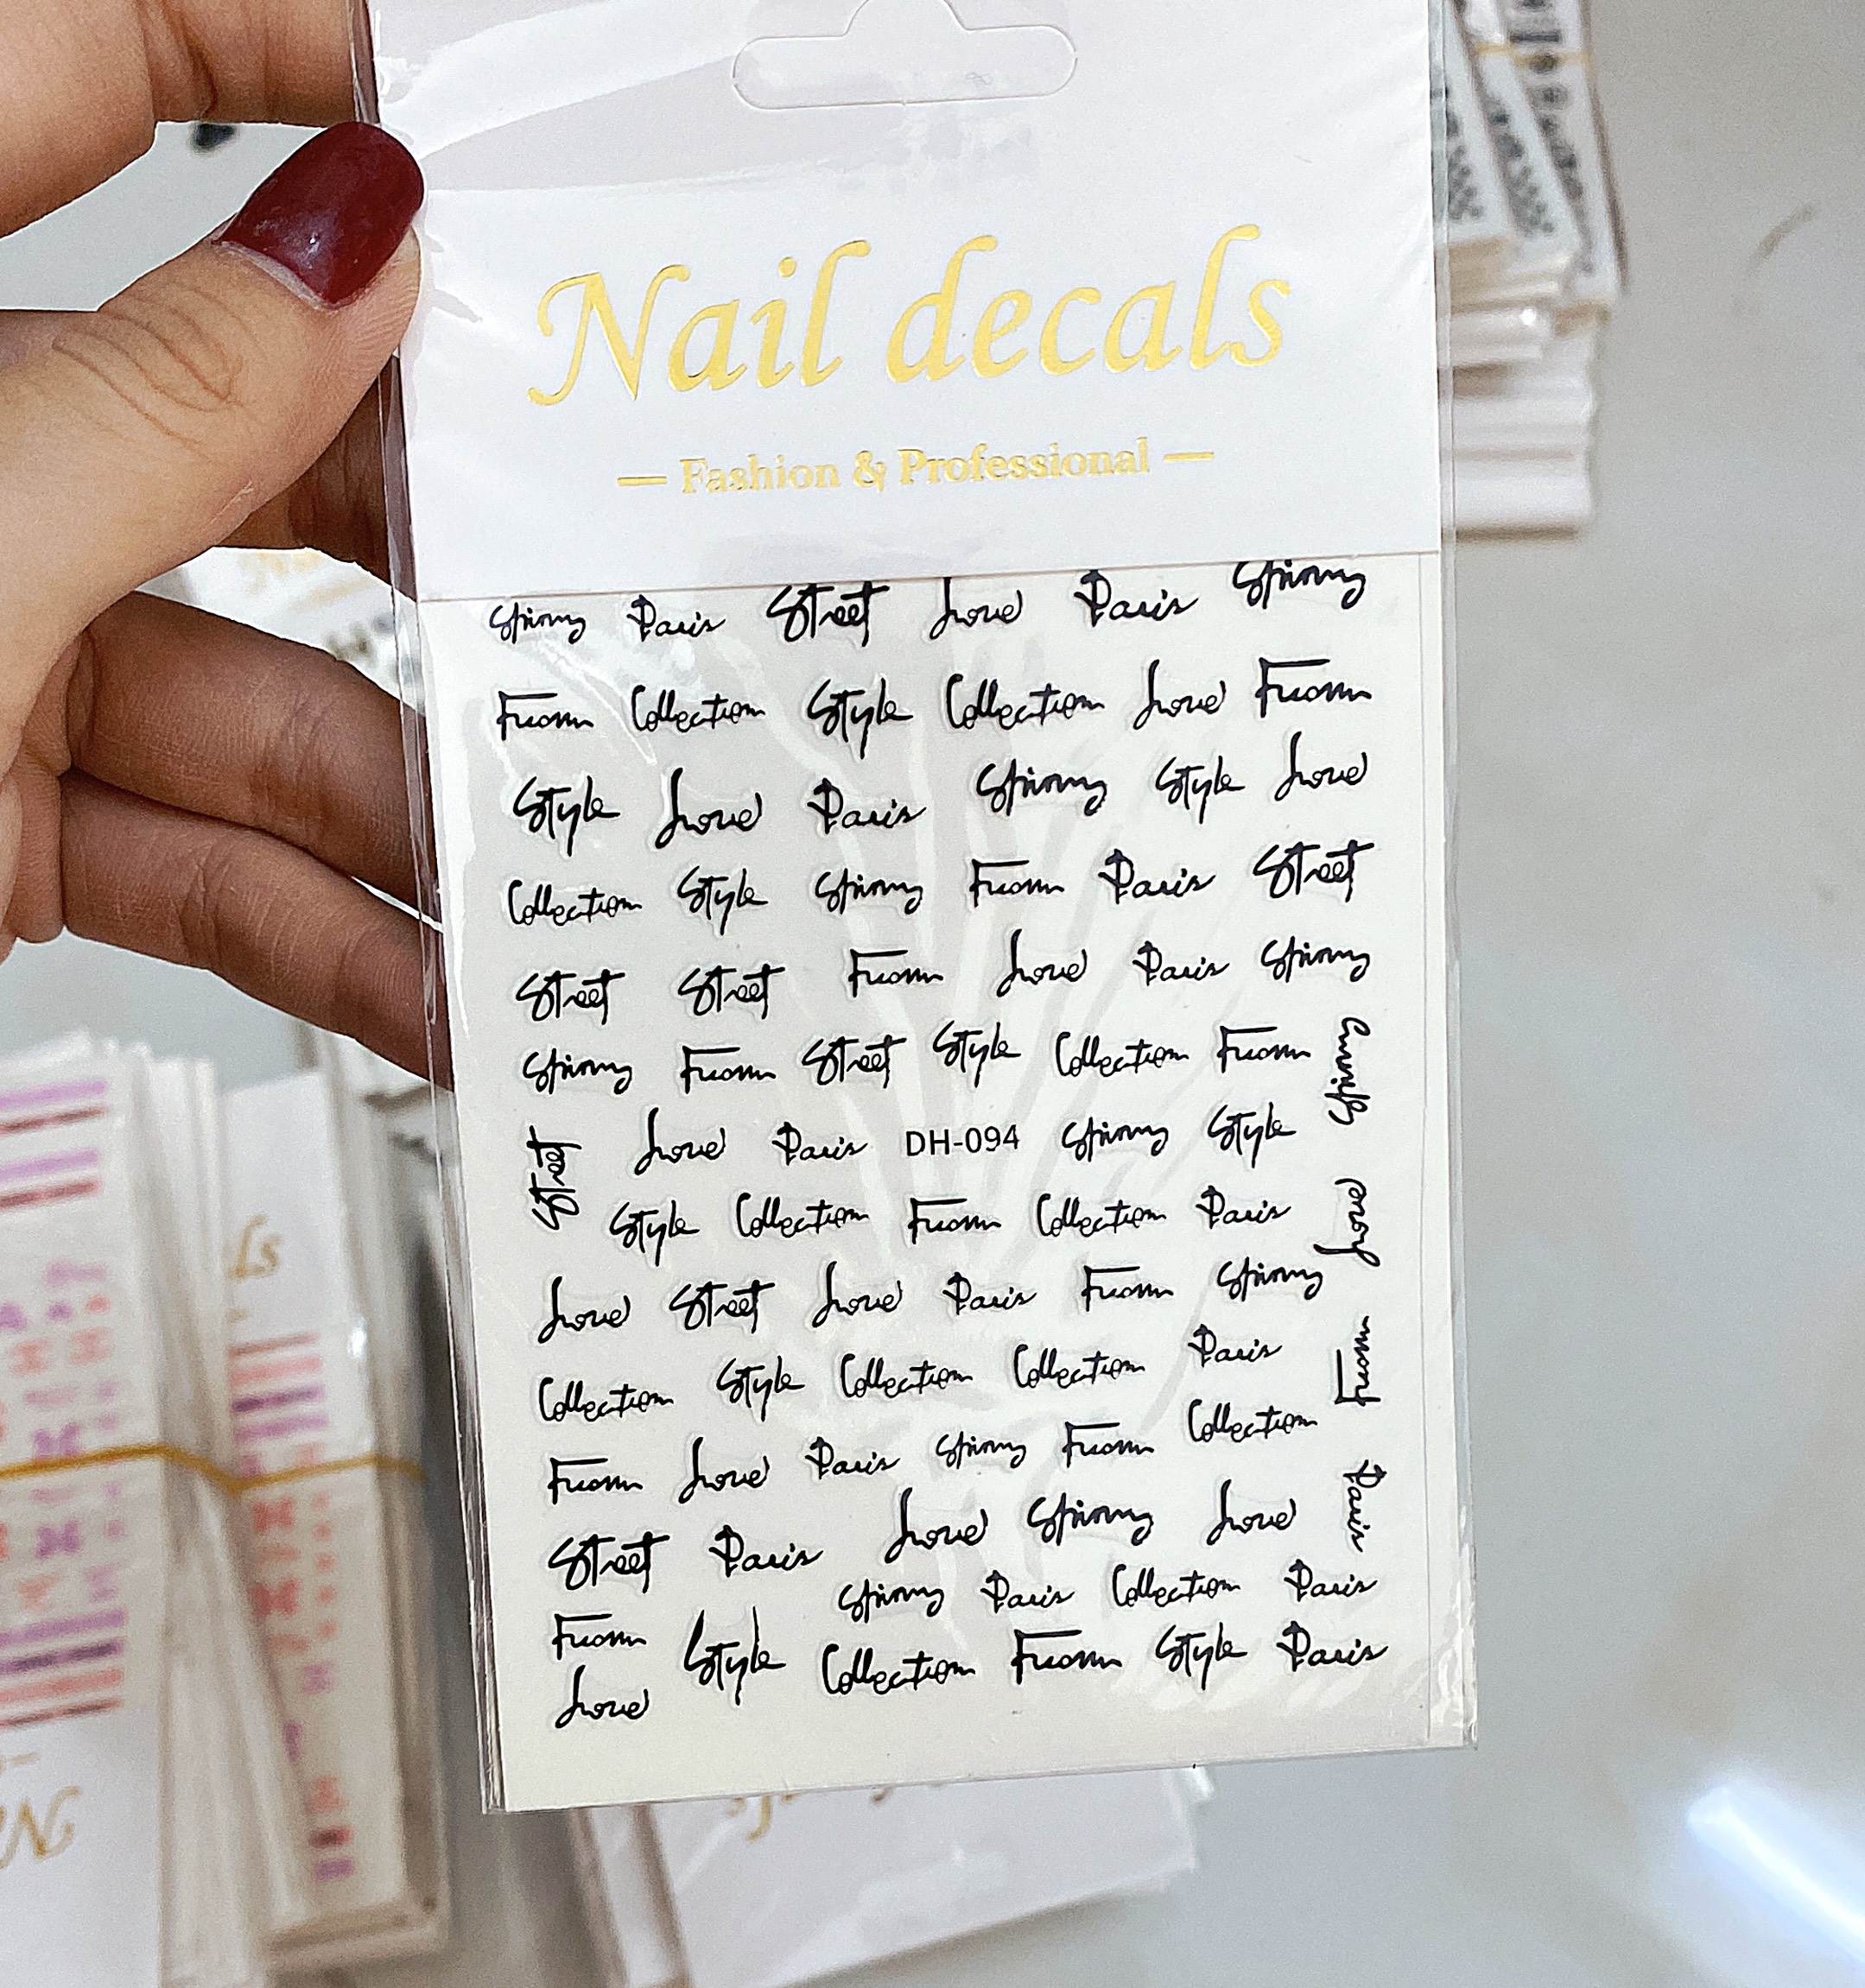 Nail decals
— Fashion & Professional —
Spirmy Paris Street Love Paris Spirmy
From Collection Style Collection Love From
Style Love Paris Spirmy Style Love
Collection Style Spirmy From Paris Street
Street Street From Love Paris Spirmy
Spirmy From Street Style Collection From Spirmy
Street Love Paris DH-094 Spirmy Style
Style Collection From Collection Paris Love
Love Street Love Paris From Spirmy
Collection Style Collection Collection Paris From
From Love Paris Spirmy From Collection
Street Paris Love Spirmy Love Paris
Spirmy Paris Collection Paris
From Style Collection From Style Paris
Love
ls